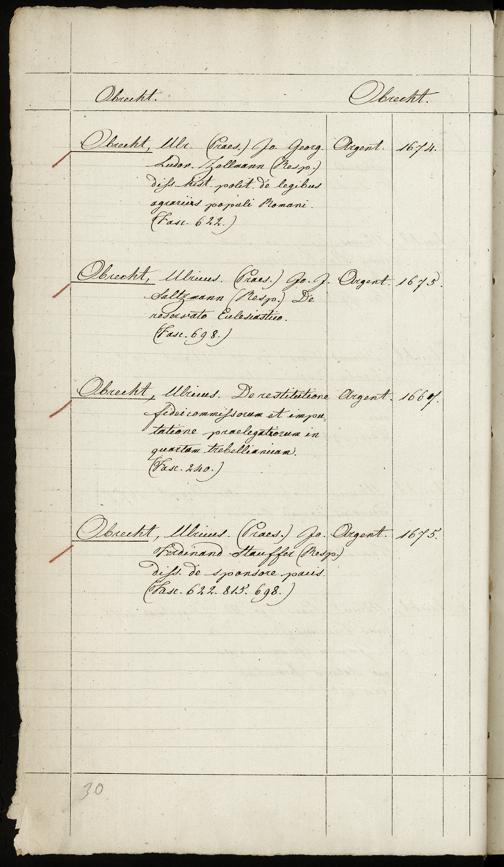 Obrecht. Obrecht.
Obrecht, Ulr. (Praes.) Jo. Georg. Argent. 1674.
Ludov. Zollmann (Resp.)
diss. hist. polit. de legibus
agrariis populi Romani.
(Fasc. 622.)
Obrecht, Ulricus. (Praes.) Jo. J. Argent. 1675.
Saltzmann (Resp.) De
reservato Ecclesiastico.
(Fasc. 698.)
Obrecht, Ulricus. De restitutione Argent. 166
fideicommissorum et impu-
tatione praelegatiorum in
quartam trebellianicam.
(Fasc. 240.)
Obrecht, Ulricus. (Praes.) Jo. Argent. 1675.
Ferdinand Stauffer (Resp)
diss. de sponsore pacis.
(Fasc. 622. 815. 698.)
30